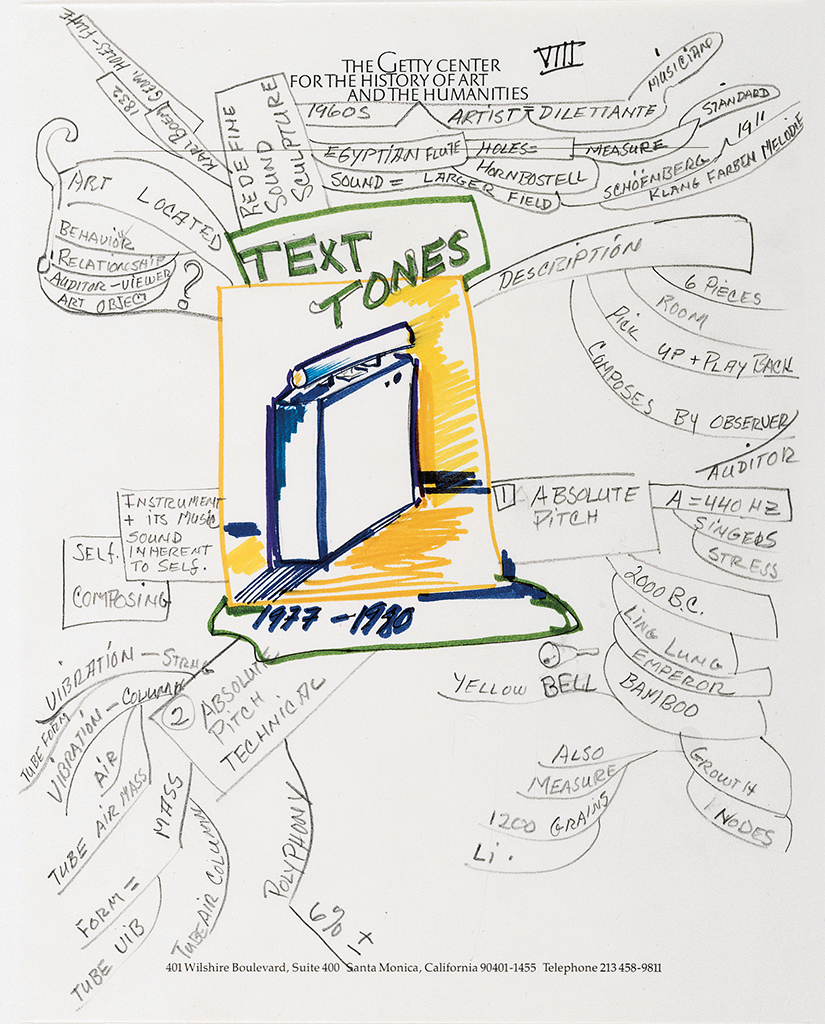 THE GETTY CENTER
FOR THE HISTORY OF ART
AND THE HUMANITIES
VIII
GEM. HOLES-FLUTE
1832
KARL DOEN
REDEFINE
SOUND
SCULPTURE
1960S
ARTIST = DILETTANTE
MUSICIAN
EGYPTIAN FLUTE
HOLES=
MEASURE
STANDARD
HORNBOSTELL
SOUND = LARGER FIELD
SCHÖENBERG
1911
KLANG FARBEN MELODIE
ART
LOCATED
BEHAVIOR
RELATIONSHIP
AUDITOR-VIEWER
ART OBJECT
?
TEXT
TONES
DESCRIPTION
6 PIECES
ROOM
PICK UP + PLAY BACK
COMPOSES BY OBSERVER
AUDITOR
INSTRUMENT
+ ITS MUSIC
SOUND
INHERENT
TO SELF.
SELF.
COMPOSING
1 ABSOLUTE
PITCH
A=440 HZ
SINGERS
STRESS
2000 B.C.
LING LUNG
EMPEROR
BAMBOO
YELLOW BELL
GROWTH
NODES
ALSO
MEASURE
1200 GRAINS
Li.
1977-1980
2 ABSOLUTE
PITCH
TECHNICAL
VIBRATION - STRNG
TUBE FORM
VIBRATION - COLUMN
AIR
TUBE AIR MASS
MASS
FORM =
TUBE VIB
TUBE AIR COLUMN
POLYPHONY
6% ±
401 Wilshire Boulevard, Suite 400 Santa Monica, California 90401-1455 Telephone 213 458-9811